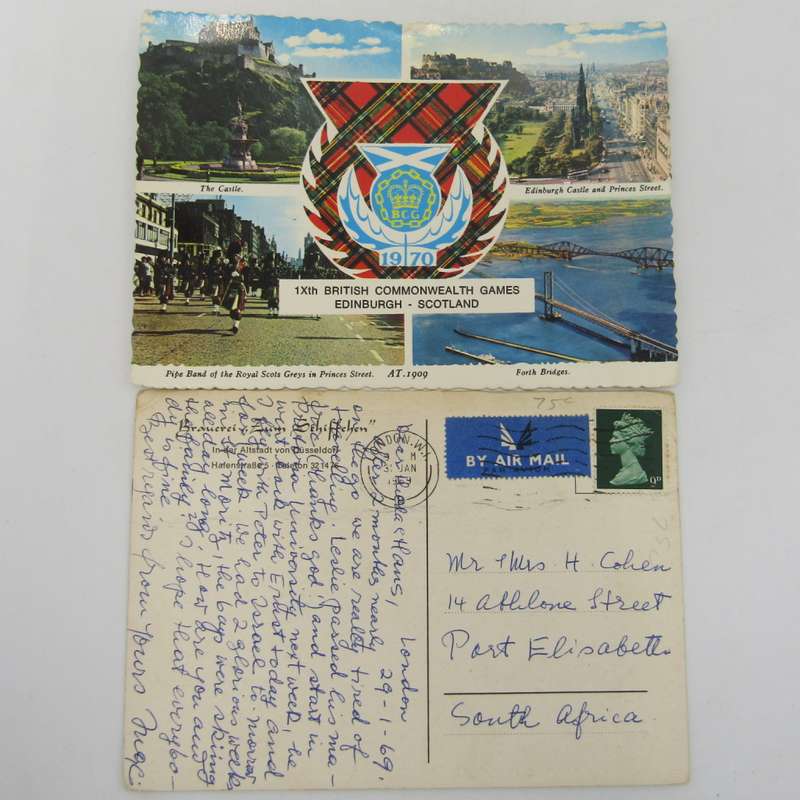 The Castle.
Edinburgh Castle and Princes Street.
BCG
1970
1Xth BRITISH COMMONWEALTH GAMES
EDINBURGH - SCOTLAND
Pipe Band of the Royal Scots Greys in Princes Street. AT.1909
Forth Bridges.
75c
Brauerei „Zum Schiffchen"
In der Altstadt von Düsseldorf
Hafenstraße 5 · Telefon 32 14
LONDON.W.1
M
JAN
BY AIR MAIL
PAR AVION
9D
Mr & Mrs. H. Cohen
14 Athlone Street
Port Elisabeth
South Africa
London 29-1-69.
Dear & Hans,
months nearly
on the go we are really tired of
travelling. Leslie passed his ma-
tric (thanks god) and start in
University next week, he
went out with Ernst today and
I fly with Peter to Israel to morrow
for a week. We had 2 glorious weeks
in St. Moritz, the boys were skiing
all day long. How are you and
the family? I hope that everybo-
dy is fine
Best regards from yours Maxi